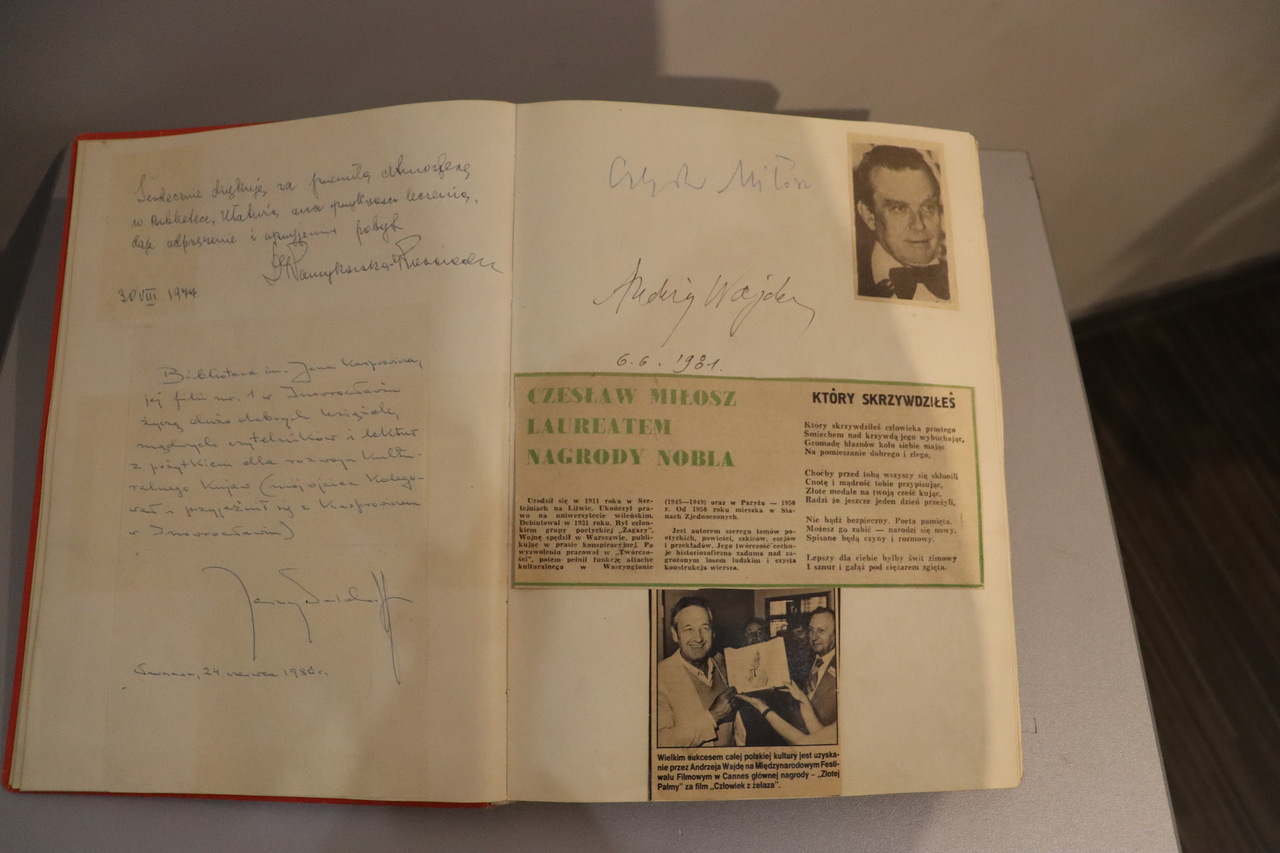 Serdecznie dziękuję za przemiłą atmosferę
w Bibliotece. Ułatwia ona przykrości leczenia,
daje odprężenie i uprzyjemnia pobyt
30 VIII 1974
Bibliotece im. Jana Kasprowicza,
jej filii nr. 1 w Inowrocławiu
życzę dużo dobrych książek,
mądrych czytelników i lektur
z pożytkiem dla rozwoju kultu-
ralnego Kujaw (mój ojciec kolego-
wał i przyjaźnił się z Kasprowiczem
w Inowrocławiu)
Jerzy
24 czerwca 1980r.
Czesław Miłosz
Andrzej Wajda
6.6.1981.
CZESŁAW MIŁOSZ
LAUREATEM
NAGRODY NOBLA
Urodził się w 1911 roku w Sze-
tejniach na Litwie. Ukończył pra-
wo na uniwersytecie wileńskim.
Debiutował w 1931 roku. Był człon-
kiem grupy poetyckiej „Żagary".
Wojnę spędził w Warszawie, publi-
kując w prasie konspiracyjnej. Po
wyzwoleniu pracował w „Twórczo-
ści", potem pełnił funkcję attache
kulturalnego w Waszyngtonie
(1945—1949) oraz w Paryżu — 1950
r. Od 1958 roku mieszka w Sta-
nach Zjednoczonych.
Jest autorem szeregu tomów po-
etyckich, powieści, szkiców, esejów
i przekładów. Jego twórczość cechu-
je historiozoficzna zaduma nad za-
grożonym losem ludzkim i czysta
konstrukcja wiersza.
KTÓRY SKRZYWDZIŁEŚ
Który skrzywdziłeś człowieka prostego
Śmiechem nad krzywdą jego wybuchając,
Gromadę błaznów koło siebie mając
Na pomieszanie dobrego i złego,
Choćby przed tobą wszyscy się skłonili
Cnotę i mądrość tobie przypisując,
Złote medale na twoją cześć kując,
Radzi że jeszcze jeden dzień przeżyli,
Nie bądź bezpieczny. Poeta pamięta.
Możesz go zabić — narodzi się nowy.
Spisane będą czyny i rozmowy.
Lepszy dla ciebie byłby świt zimowy
I sznur i gałąź pod ciężarem zgięta.
Wielkim sukcesem całej polskiej kultury jest uzyska-
nie przez Andrzeja Wajdę na Międzynarodowym Festi-
walu Filmowym w Cannes głównej nagrody – „Złotej
Palmy" za film „Człowiek z żelaza".